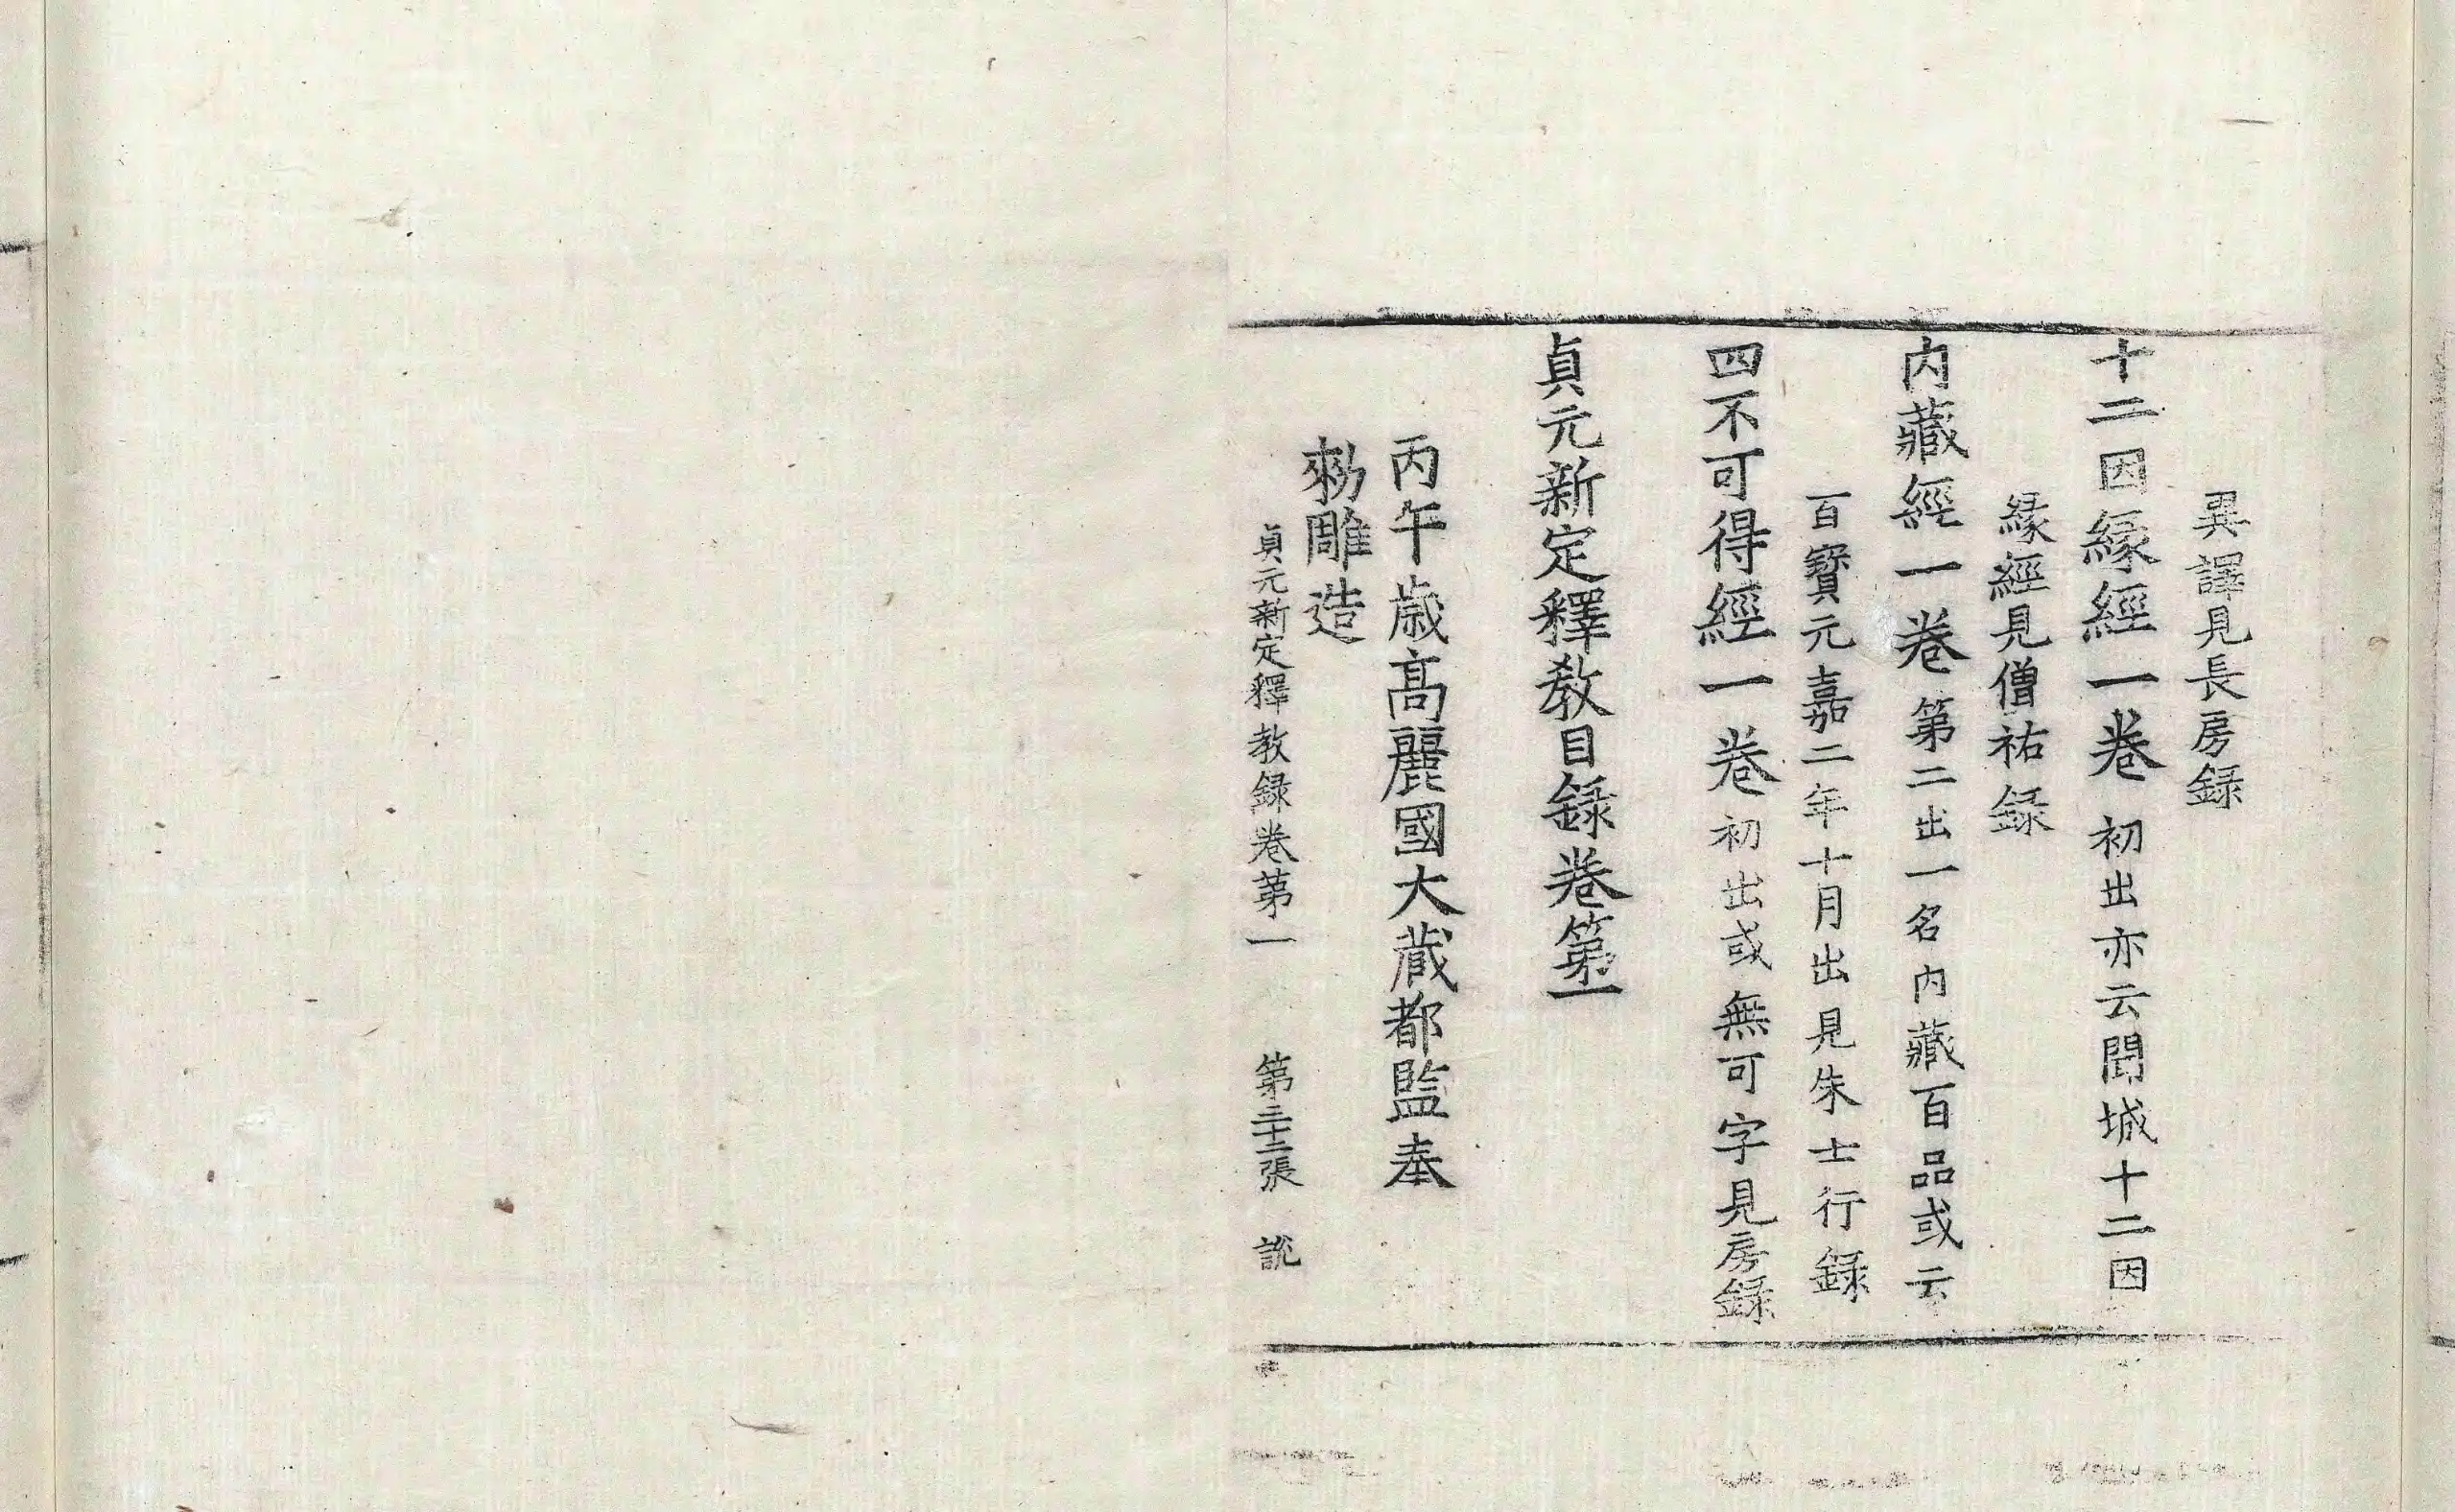 異譯見長房録
十二因縁經一卷 初出亦云聞城十二因
縁經見僧祐録
内藏經一卷 第二出一名内藏百品或云
百寶元嘉二年十月出見朱士行録
四不可得經一卷 初出或無可字見房録
貞元新定釋教目録卷第一
丙午歳髙麗國大藏都監奉
勑雕造
貞元新定釋教録卷苐一 第三十二張 説